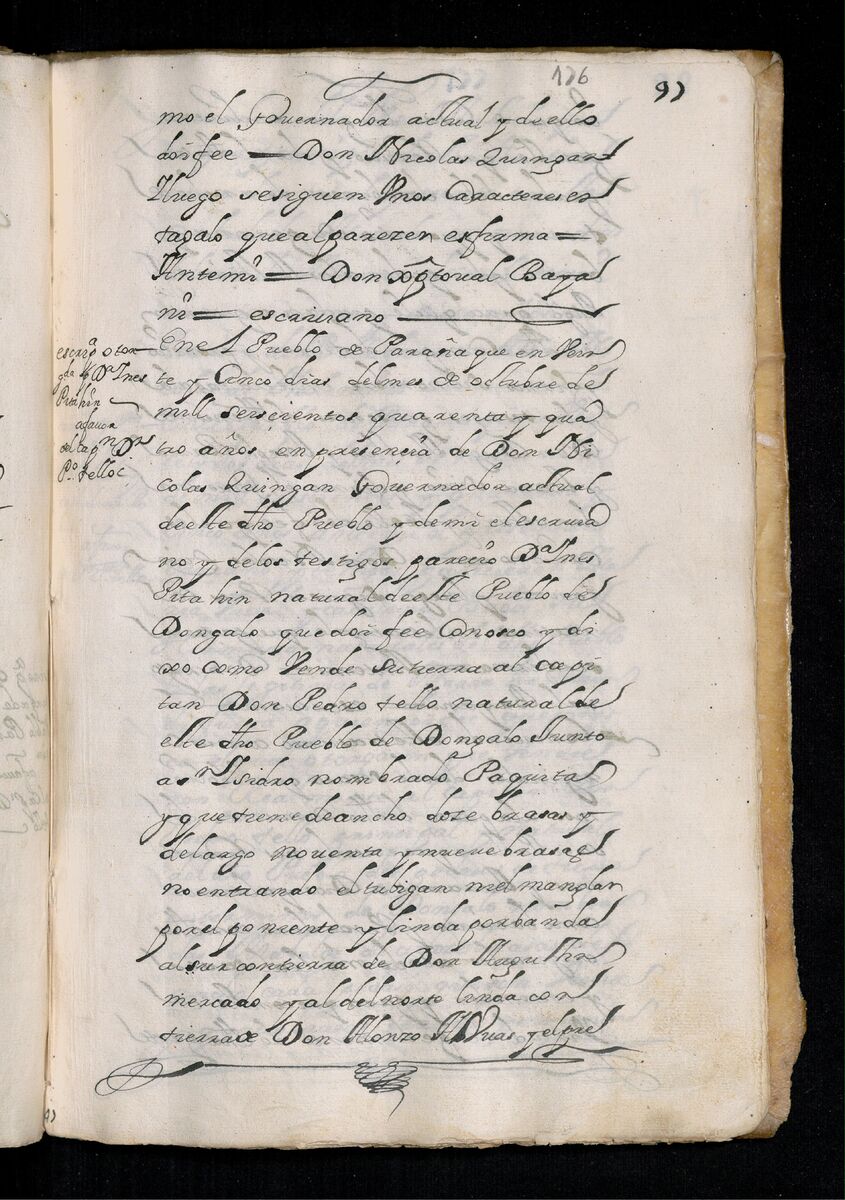 176
97
mo el Gouernador actual y de ello
doi fee = Don Nicolas Quingan
Iluego se siguen Vnos Caracteres en
tagalo que al parezer es firma =
Antemi = Don xptoual Baya
ni = escriuano
escriª otor
gda Dª Ines
Pitahin
a fauor
del capn Dn
Po. tello
En el Pueblo de Parañaque en Vein
te y Cinco dias del mes de octubre de
mill seiscientos quarenta y qua
tro años en presençia de Don Ni
colas Quingan Gouernador actual
de este dho Pueblo y de mi el escriua
no y de los testigos pareçio Dª Ines
Pitahin natural de este Pueblo de
Dongalo que doi fee Conosco y di
xo como Vende su tierra al capi
tan Don Pedro tello natural de
este dho Pueblo de Dongalo Junto
a sn Isidro nombrado Paquita
y que tiene de ancho doze brasas y
de largo nouenta y nueue brasas
no entrando el tubigan ni el manglar
por el poniente y linda por banda
al sur con tierra de Don Augustin
mercado y al del norte linda con
tierra de Don Alonzo y el pre